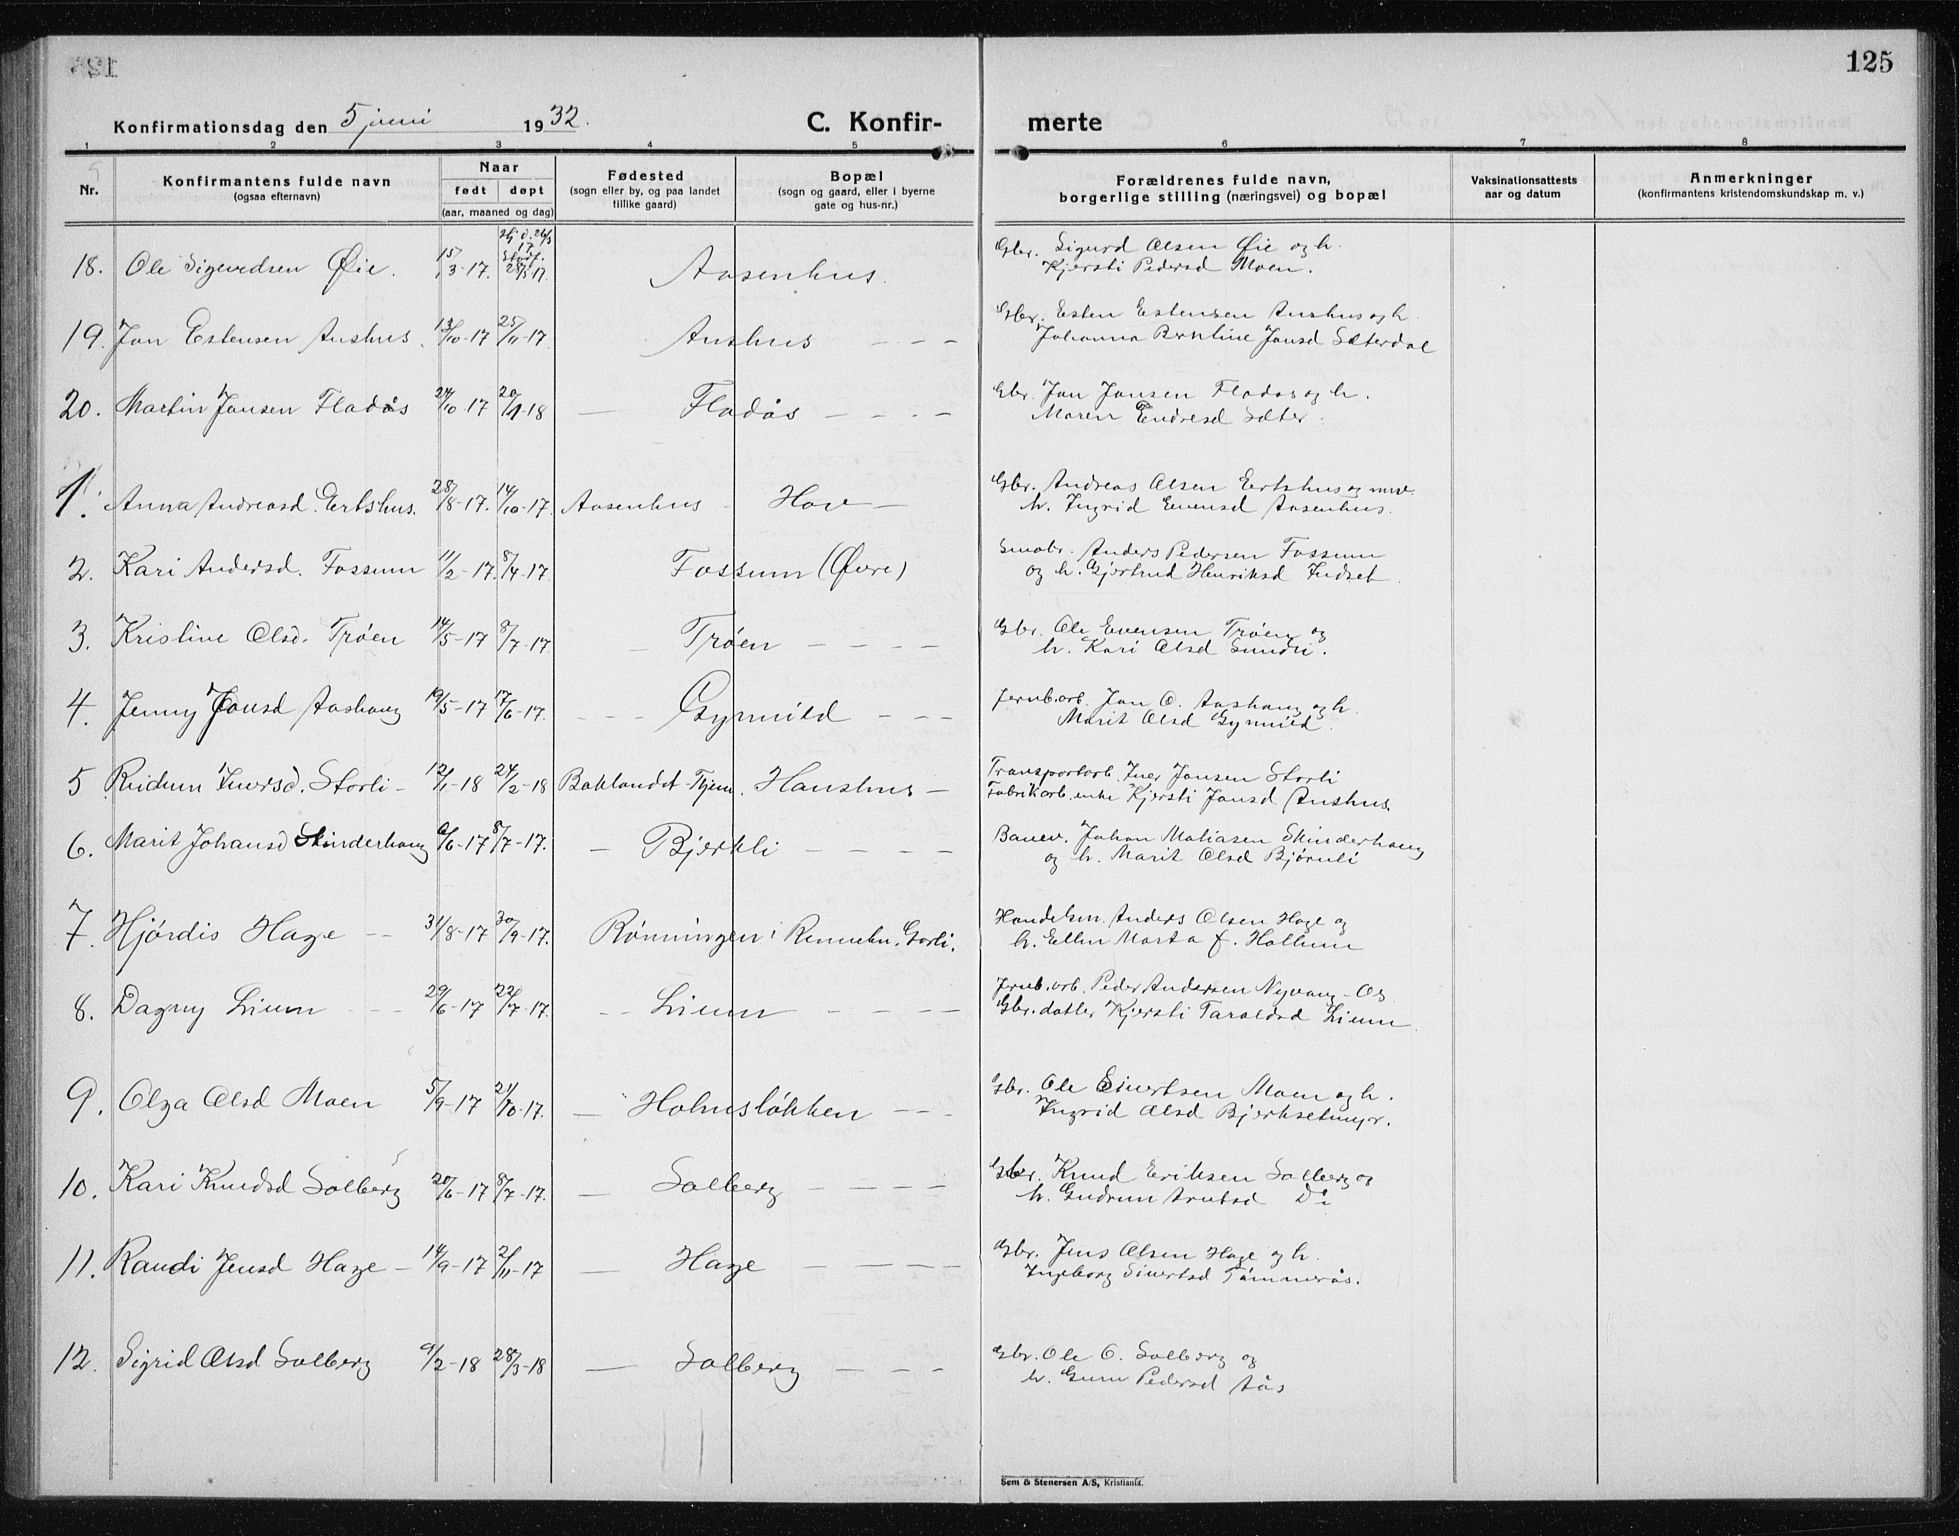 125
Konfirmationsdag den 5 juni 1932.
C. Konfir- merte
1 2 3 4 5 6 7 8
Nr.
Konfirmantens fulde navn
(ogsaa efternavn)
Naar
født døpt
(aar, maaned og dag)
Fødested
(sogn eller by, og paa landet
tillike gaard)
Bopæl
(sogn og gaard, eller i byerne
gate og hus-nr.)
Forældrenes fulde navn,
borgerlige stilling (næringsvei) og bopæl
Vaksinationsattests
aar og datum
Anmerkninger
(konfirmantens kristendomskundskap m. v.)
18. Ole Sigurdsen Øie. 15/3-17. Hj.d. 26/3 17 Aasenhus. Gbr. Sigurd Olsen Øie og h.
Kjersti Pedersd Moen.
19. Jon Estensen Aushus. 13/10-17 25/11-17. Aushus - - - Gbr. Esten Estensen Aushus og h.
Johanna Berntine Jonsd Sæterdal
20. Martin Jonsen Fladås 24/10-17 20/1-18 — Flodås - - - - Gbr. Jon Jonsen Flodås og h.
Maren Endresd Sæter.
1. Anna Andreasd. Ertshus. 28/8-17. 14/10-17. Aasenhus - Hov - Gbr. Andreas Olsen Eertshus og
h. Ingrid Evensd Aasenhus.
2. Kari Andersd. Fossum 11/2-17. 8/4-17. Fossum (Øvre) Smabr. Anders Pedersen Fossum
og h. Gjertrud Henriksd Indset.
3. Kristine Olsd. Trøen 14/5-17 8/7-17. - Trøen - - - - Gbr. Ole Evensen Trøen og
h. Kari Olsd Gundri.
4. Jenny Jonsd Aashaug 19/5-17 17/6-17. - - - Gynnild - - - Jernb.arb. Jon O. Aashaug og h.
Marit Olsd Gynnild.
5 Reidun Iversd. Storli - 12/1-18 24/2-18 Baklandet Tjem. Haushus - Transportarb. Iver Jonsen Storli
Fabrikarb. enke Kjersti Jonsd Aushus.
6. Marit Johansd Skinderhaug 6/6-17 8/7-17. - Bjerkli - - - - Banev. Johan Matiasen Skinderhaug
og h. Marit Olsd Bjørnli
7. Hjørdis Hage -- 31/8-17 30/9-17. Rønningen i Rennebu. Gorli. Handelsm. Anders Olsen Hage og
h. Ellen Marta f. Hollum
8. Dagny Lium - - - 29/6-17 22/7-17. - - Lium - - - - Jernb.arb. Peder Andersen Nyvang - Og
Gbr. datter Kjersti Taraldsd Lium.
9. Olga Olsd Moen 5/9-17 21/10-17. — Holmsløkken - - - Gbr. Ole Sivertsen Moen og h.
Ingrid Olsd Bjerksetmyr.
10. Kari Knudsd Solberg 20/6-17 8/7-17. — Solberg - - - - Gbr. Knud Eriksen Solberg og
h. Gudrun Arntsd Do
11. Randi Jensd Hage - 14/9-17 2/11-17 — Hage - - - - Gbr. Jens Olsen Hage og h.
Ingeborg Sivertsd Tømmerås.
12. Sigrid Olsd Solberg 9/2-18 28/3-18 — Solberg - - - Gbr. Ole O. Solberg og
h. Guru Pedersd Aås
Sem & Stenersen A/S, Kristiania.